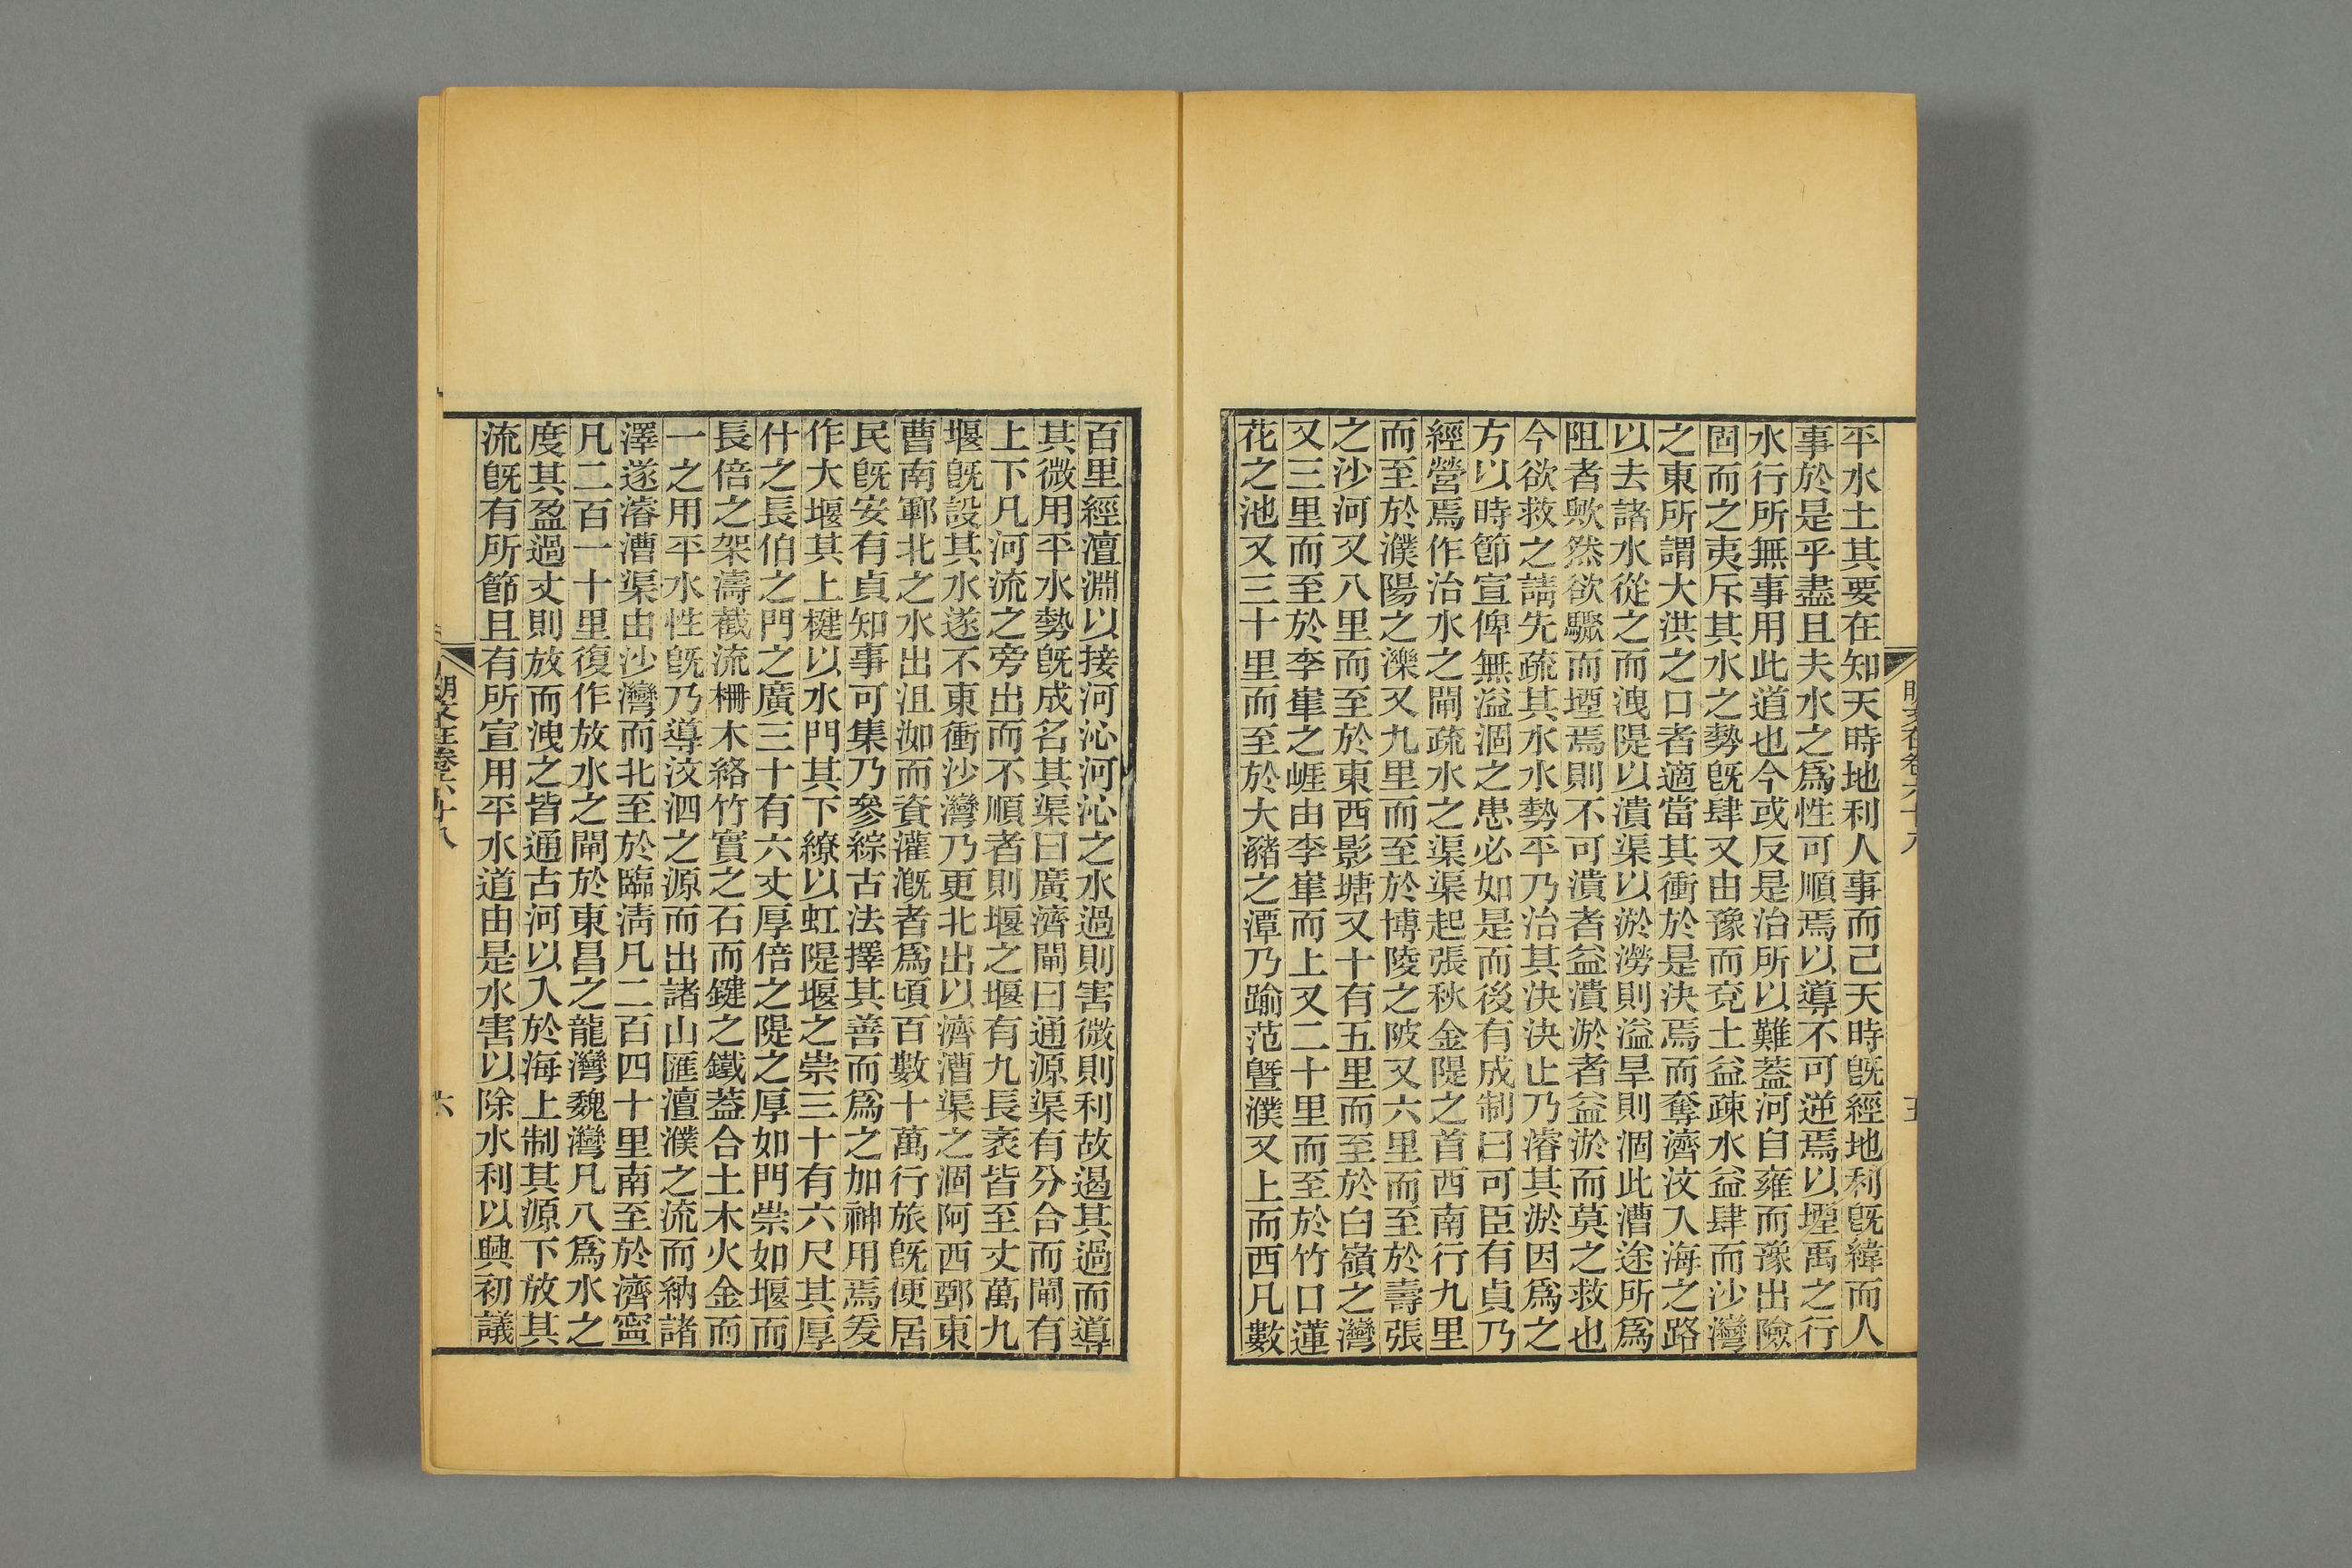 平水土其要在知天時地利人事而己天時旣經地利旣緯而人
事於是乎盡且夫水之爲性可順焉以導不可逆焉以堙禹之行
水行所無事用此道也今或反是治所以難蓋河自雍而豫出險
固而之夷斥其水之勢旣肆又由豫而兗土益疎水益肆而沙灣
之東所謂大洪之口者適當其衝於是決焉而奪濟汶入海之路
以去諸水從之而洩隄以潰渠以淤澇則溢旱則涸此漕途所爲
阻者歟然欲驟而堙焉則不可潰者益潰淤者益淤而莫之救也
今欲救之請先疏其水水勢平乃治其决決止乃濬其淤因爲之
方以時節宣俾無溢涸之患必如是而後有成制曰可臣有貞乃
經營焉作治水之閘疏水之渠渠起張秋金隄之首西南行九里
而至於濮陽之濼又九里而至於博陵之陂又六里而至於壽張
之沙河又八里而至於東西影塘又十有五里而至於白嶺之灣
又三里而至於李崋之崕由李崋而上又二十里而至於竹口蓮
花之池又三十里而至於大瀦之潭乃踰范曁濮又上而西凡數
百里經澶淵以接河沁河沁之水過則害微則利故遏其過而導
其微用平水勢旣成名其渠曰廣濟閘曰通源渠有分合而閘有
上下凡河流之旁出而不順者則堰之堰有九長袤皆至丈萬九
堰旣設其水遂不東衝沙灣乃更北出以濟漕渠之涸阿西鄄東
曹南鄆北之水出沮洳而資灌漑者爲頃百數十萬行旅旣便居
民旣安有貞知事可集乃參綜古法擇其善而爲之加神用焉爰
作大堰其上楗以水門其下繚以虹隄堰之崇三十有六尺其厚
什之長伯之門之廣三十有六丈厚倍之隄之厚如門崇如堰而
長倍之架濤截流柵木絡竹實之石而鍵之鐵蓋合土木火金而
一之用平水性旣乃導汶泗之源而出諸山匯澶濮之流而納諸
澤遂濬漕渠由沙灣而北至於臨淸凡二百四十里南至於濟寧
凡二百一十里復作放水之閘於東昌之龍灣魏灣凡八爲水之
度其盈過丈則放而洩之皆通古河以入於海上制其源下放其
流旣有所節且有所宣用平水道由是水害以除水利以興初議
六